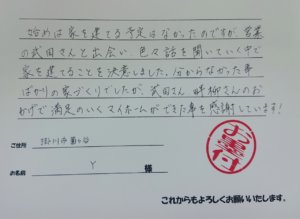 始めは家を建てる予定はなかったのですが、営業
の武田さんと出会い、色々話を聞いていく中で
家を建てることを決意しました。分からなかった事
ばかりの家づくりでしたが、武田さん、畔柳さんのお
かげで満足のいくマイホームができた事を感謝しています!
ご住所 掛川市
お名前 Y 様
お墨付
これからもよろしくお願いいたします。